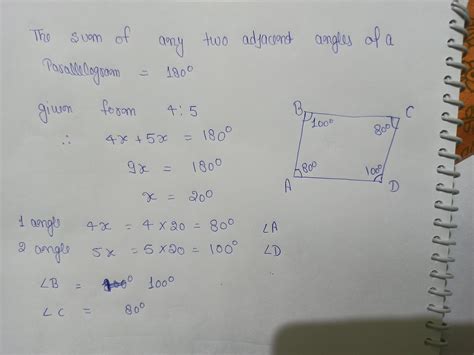 The sum of any two adjacent angles of a
Parallelogram = 180°
given form 4:5
∴ 4x + 5x = 180°
9x = 180°
x = 20°
1 angle 4x = 4 × 20 = 80° ∠A
2 angle 5x = 5 × 20 = 100° ∠D
∠B = 100°
∠C = 80°
B C
100° 80°
80° 100°
A D